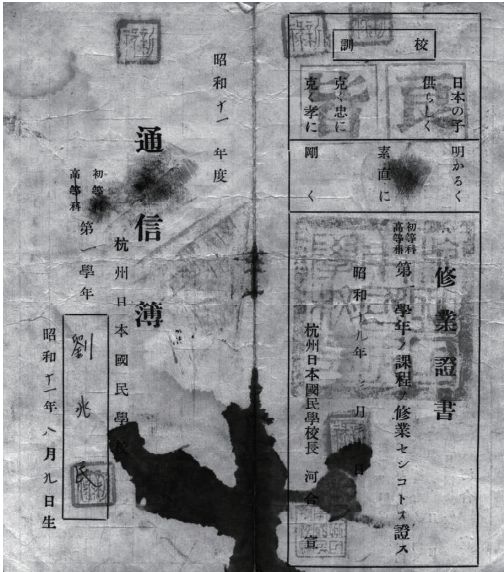 校訓
日本の子
供らしく
克く忠に
克く孝に
明かるく
素直に
剛く
修業證書
初等科
高等科
第一學年ノ課程ヲ修業セシコトヲ證ス
昭和十九年 月 日
杭州日本國民學校長 河合 宣
昭和十一年度
通信簿
杭州日本國民學校
初等科
高等科
第一學年
劉兆民
昭和十一年八月九日生